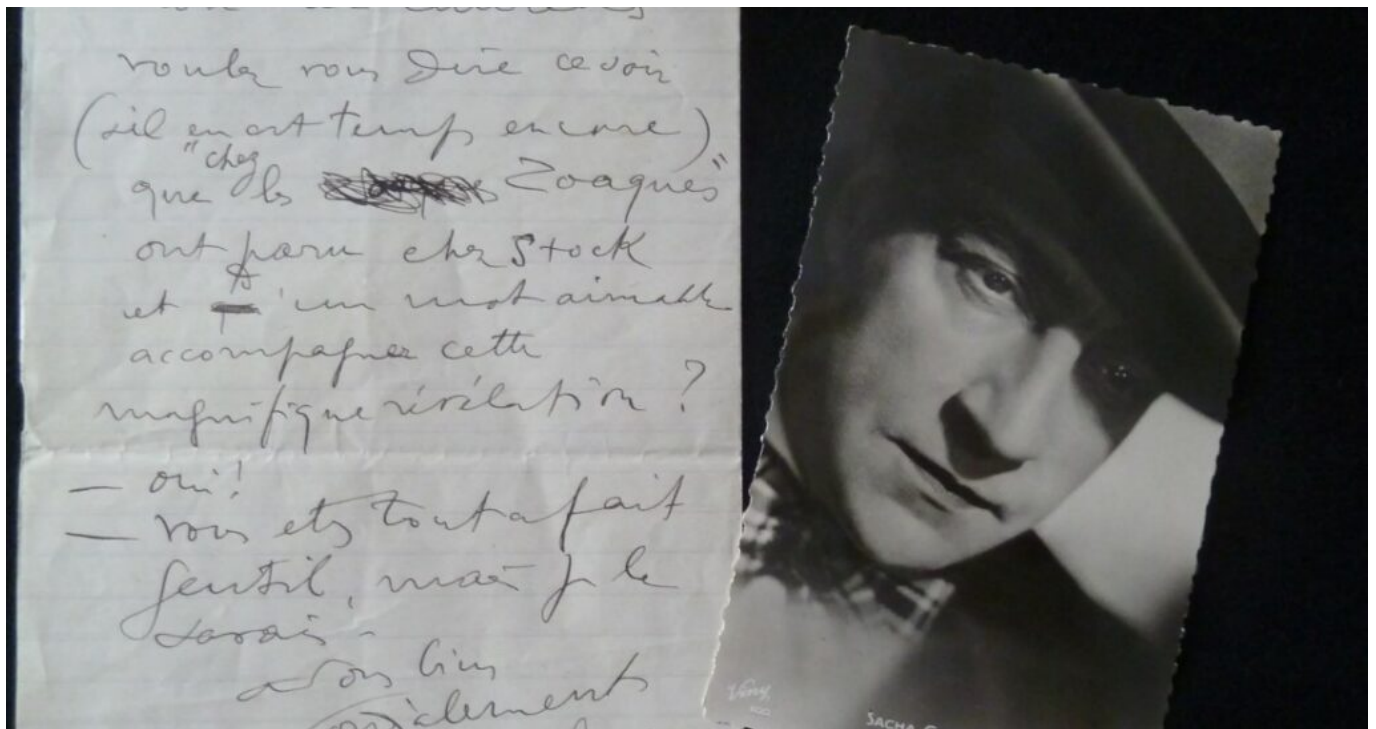 voulez vous dire ce soir
(s'il en est temps encore)
que "chez les Zoaques"
ont paru chez Stock
et d'un mot aimable
accompagner cette
magnifique révélation ?
— oui !
— vous etes tout a fait
gentil, mais je le
savais -
a vous bien
cordialement
Vény
SACHA G